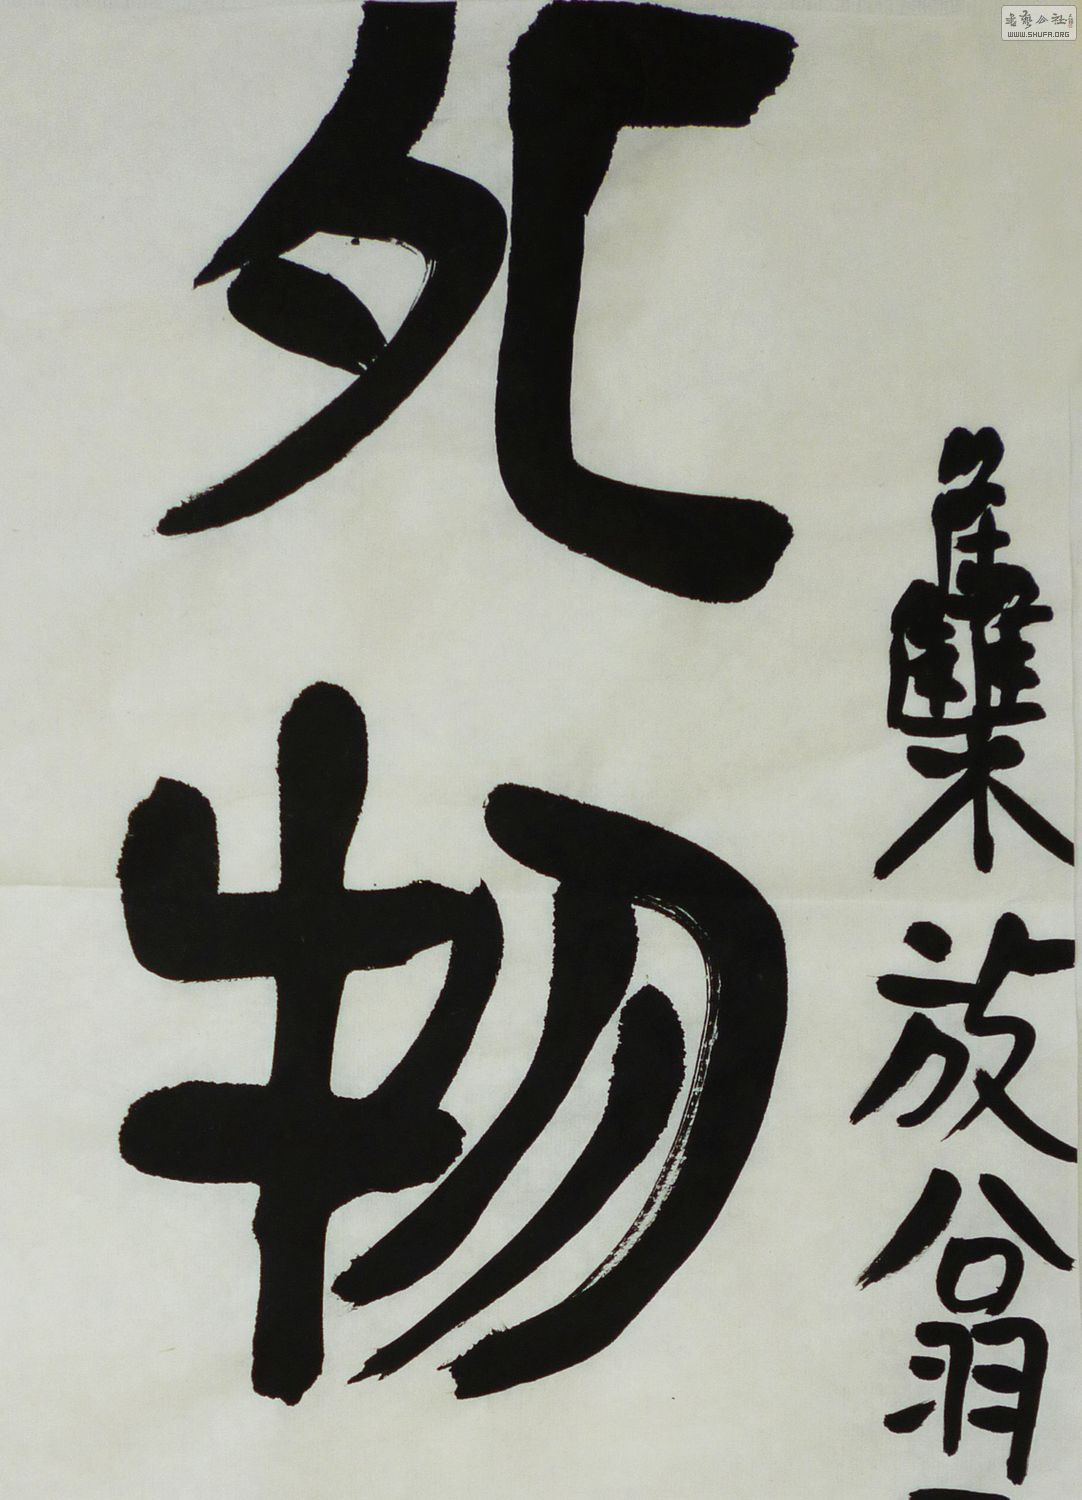 集放翁
外物
書藝公社
WWW.SHUFA.ORG